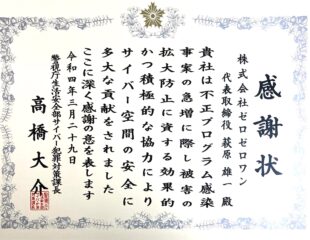 感謝状
株式会社ゼロゼロワン
代表取締役 萩原 雄一 殿
貴社は不正プログラム感染
事案の急増に際し被害の
拡大防止に資する効果的
かつ積極的な協力により
サイバー空間の安全に
多大な貢献をされました
ここに深く感謝の意を表します
令和四年三月二十九日
警視庁生活安全部サイバー犯罪対策課長
高橋大介